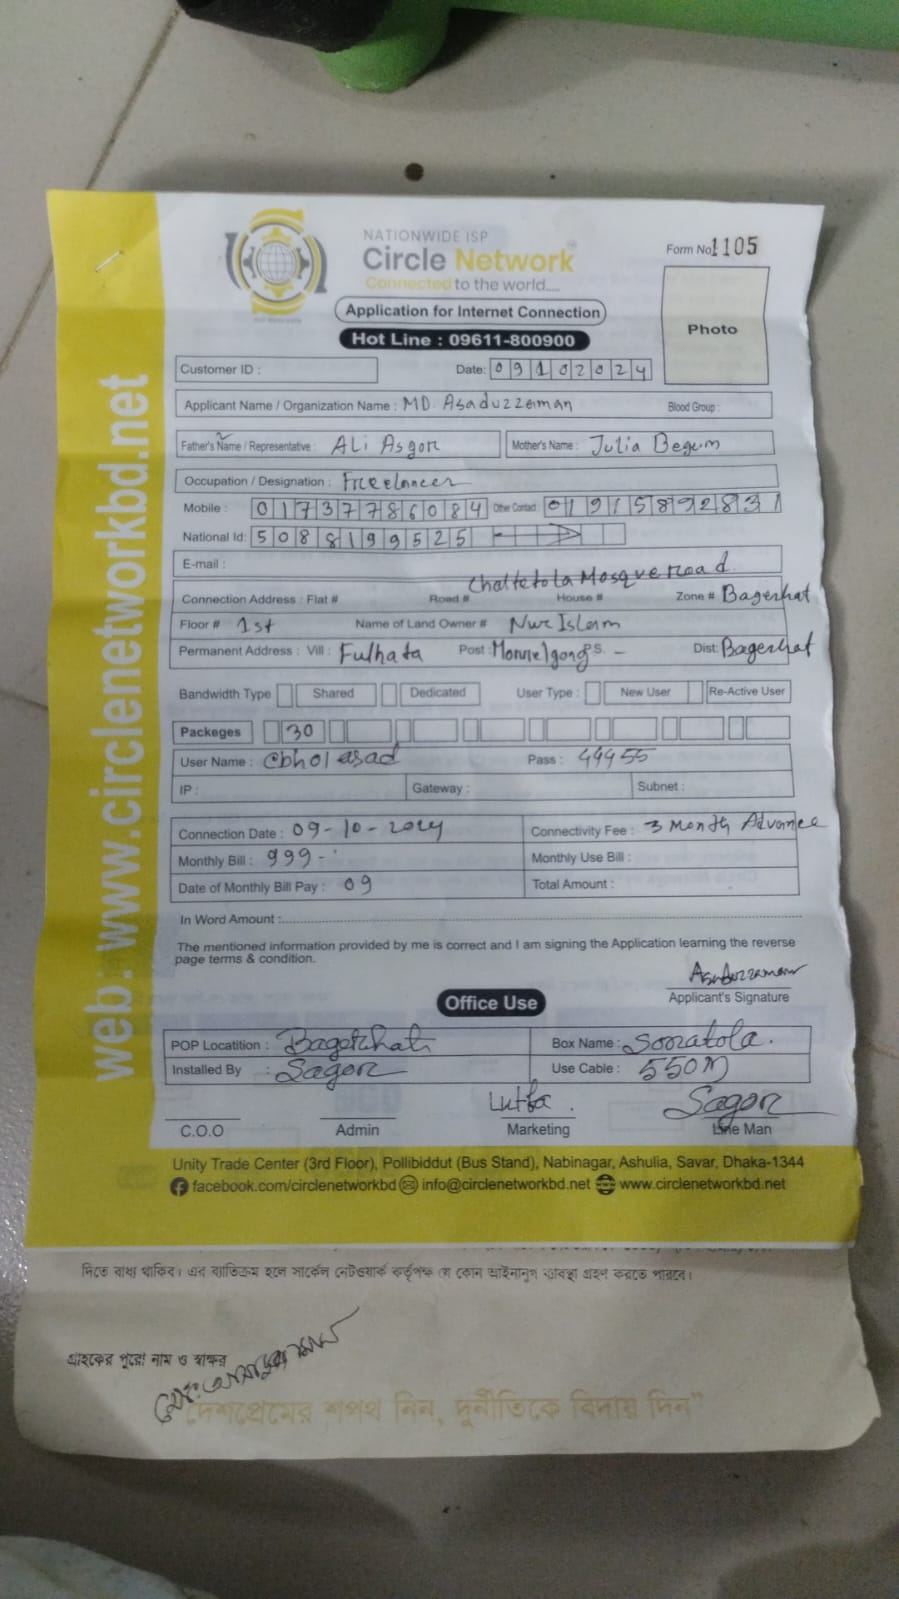 NATIONWIDE ISP
Circle Network
Connected to the world....
Form No 1105
Photo
Application for Internet Connection
Hot Line : 09611-800900
Customer ID :
Date: 09102024
Applicant Name / Organization Name : MD. Asaduzzaman Blood Group :
Father's Name / Representative : ALi Asgor Mother's Name : Julia Begum
Occupation / Designation : Freelancer
Mobile : 01737786084 Other Contact 01915892831
National Id: 5088199525
E-mail :
Chaltetola Mosque road
Connection Address : Flat # Road # House # Zone # Bagerhat
Floor # 1st Name of Land Owner # Nur Islam
Permanent Address : Vill : Fulhata Post : P.S. - Dist: Bagerhat
Bandwidth Type Shared Dedicated User Type : New User Re-Active User
Packeges 30
User Name : cbh01asad Pass : 44455
IP : Gateway : Subnet :
Connection Date : 09-10-2024 Connectivity Fee : 3 Month Advance
Monthly Bill : 999- Monthly Use Bill :
Date of Monthly Bill Pay : 09 Total Amount :
In Word Amount :
The mentioned information provided by me is correct and I am signing the Application learning the reverse
page terms & condition.
Asaduzzaman
Applicant's Signature
Office Use
POP Locatition : Bagerhat Box Name : Sonatola.
Installed By : Sagor Use Cable : 550M
Lutfa. Sagor
C.O.O Admin Marketing Line Man
Unity Trade Center (3rd Floor), Pollibiddut (Bus Stand), Nabinagar, Ashulia, Savar, Dhaka-1344
facebook.com/circlenetworkbd info@circlenetworkbd.net www.circlenetworkbd.net
web: www.circlenetworkbd.net
দিতে বাধ্য থাকিব। এর ব্যতিক্রম হলে সার্কেল নেটওয়ার্ক কর্তৃপক্ষ যে কোন আইনানুগ ব্যবস্থা গ্রহণ করতে পারবে।
গ্রাহকের পুরো নাম ও স্বাক্ষর
মোঃ আসাদুজ্জামান
"দেশপ্রেমের শপথ নিন, দুর্নীতিকে বিদায় দিন"